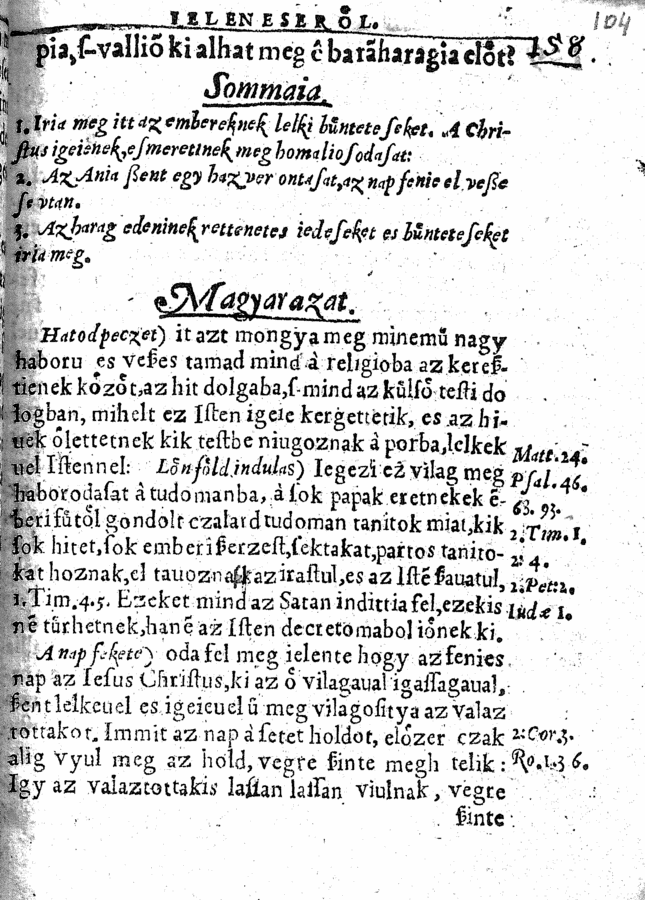 IELENESERŐL.
104
pia, ſ-vallió ki alhat meg ẽ barãharagia elót? 158.
Sommaia.
1. Iria meg itt az embereknek lelki bűnteteſeket. A Chri-
ſtus igeienek, eſmeretinek meg homalioſodaſat:
2. Az Ania ßent egy haz ver ontaſat, az nap fenie el veße
ſe vtan.
3. Az harag edeninek rettenetes iedeſeket es bűnteteſeket
iria meg.
Magyarazat.
Hatod peczet) it azt mongya meg minemű nagy
haboru es veßes tamad mind à religioba az kereß-
tienek kőzőt, az hit dolgaba, ſ-mind az kűlſő teſti do
logban, mihelt ez Iſten igeie kergettetik, es az hi-
uek őlettetnek kik teſtbe niugoznak à porba, lelkek
uel Iſtennel: Lőn főld indulas) Iegezi ez vilag meg
Matt. 24.
haborodaſat à tudomanba, à ſok papak eretnekek ẽ-
Pſal. 46.
63. 93.
beri fűtől gondolt czalard tudoman tanitok miat, kik
2. Tim. 1.
ſok hitet, ſok emberi ßerzeſt, ſektakat, partos tanito-
2: 4.
kat hoznak, el tauoznak az iraſtul, es az Iſtẽ ßauatul,
2. Pet: 2.
1. Tim. 4. 5. Ezeket mind az Satan indittia fel, ezekis
Iudæ 1.
nẽ tűrhetnek, hanẽ az Iſten decretomabol iőnek ki.
A nap fekete) oda fel meg ielente hogy az fenies
nap az Ieſus Chriſtus, ki az ő vilagaual igaſſagaual,
ßent lelkeuel es igeieuel ű meg vilagoſitya az valaz
tottakot. Immit az nap à ſetet holdot, előzer czak
2: Cor. 3.
alig vyul meg az hold, vegre ßinte megh telik:
Ro. 1. 3 6.
Igy az valaztottakis laſſan laſſan viulnak, vegre
ßinte